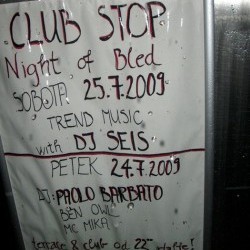 CLUB STOP
Night of Bled
SOBOTA 25.7.2009
TREND MUSIC
with DJ SEIS
PETEK 24.7.2009
DJ: PAOLO BARBATO
BEN OWL
MC MIKA
terrace & club od 22